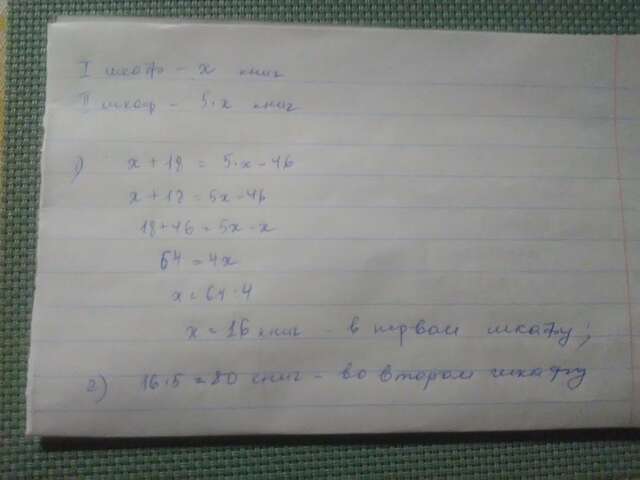 I шкаф - x книг
II шкаф - 5·x книг
1) x + 18 = 5·x - 46
x + 18 = 5x - 46
18 + 46 = 5x - x
64 = 4x
x = 64 : 4
x = 16 книг - в первом шкафу;
2) 16·5 = 80 книг - во втором шкафу